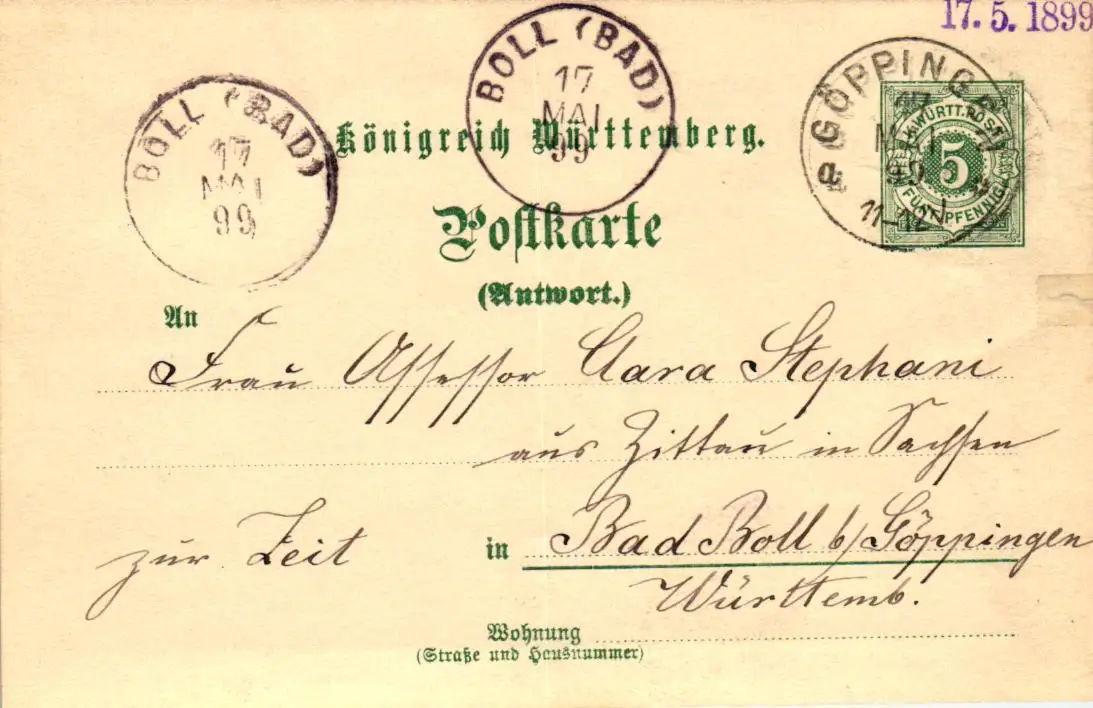 17. 5. 1899
BOLL (BAD)
17
MAI
99
BOLL (BAD)
17
MAI
99
GÖPPINGEN
17
MAI
99
11-12
K. WÜRTT. POST
5
FÜNF PFENNIG
Königreich Württemberg.
Postkarte
(Antwort.)
An
Frau Assessor Clara Stephani
aus Zittau in Sachsen
zur Zeit in Bad Boll b/Göppingen
Württemb.
Wohnung
(Straße und Hausnummer)